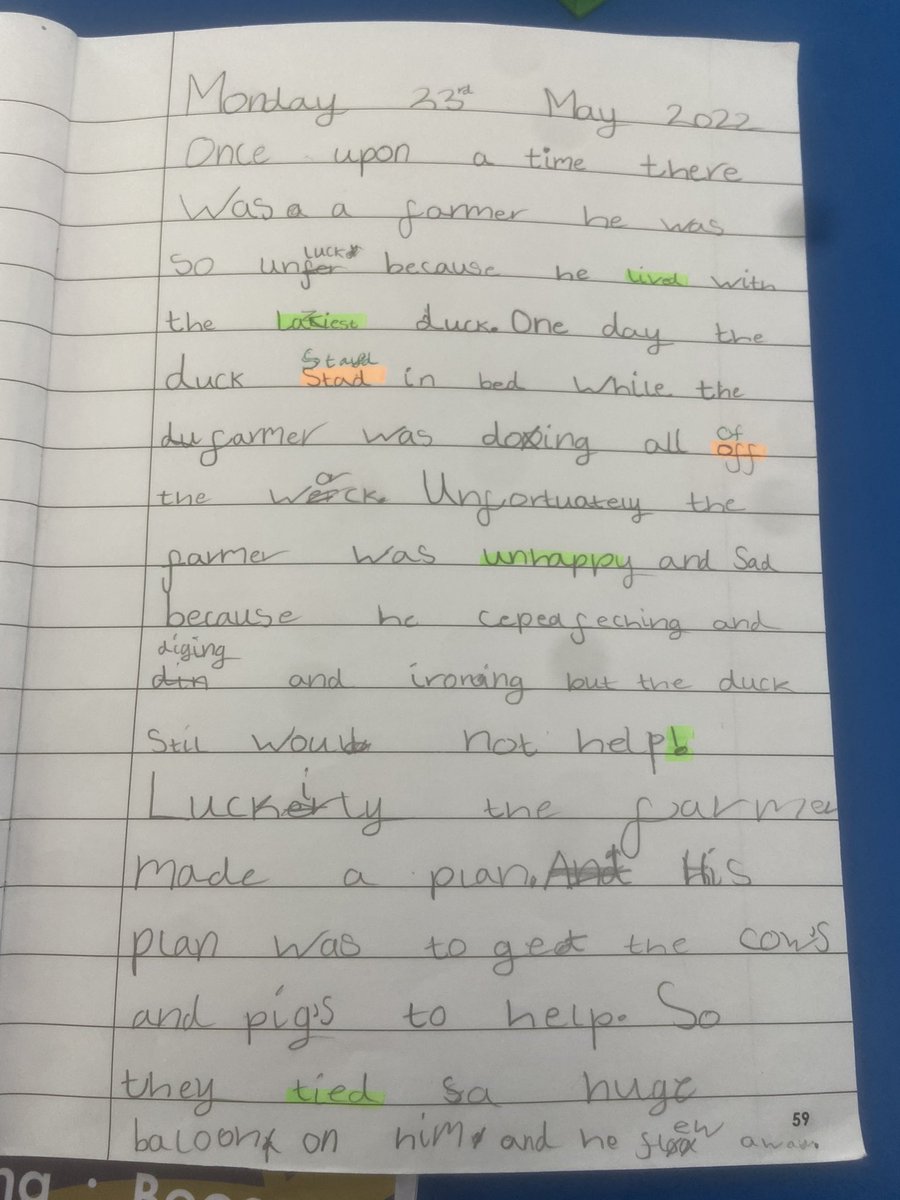 Monday 23rd May 2022
Once upon a time there
Was a a farmer he was
So unluck because he lived with
the laziest duck. One day the
duck Stad stayed in bed while the
farmer was doing all off of
the worck. Unfortuately the
farmer was unhappy and Sad
because he cepea feching and
diging and ironing but the duck
Stil would not help!
Luckily the farmer
made a plan. And His
plan was to get the cow's
and pig's to help. So
they tied a huge
baloon on him and he flew away.
59